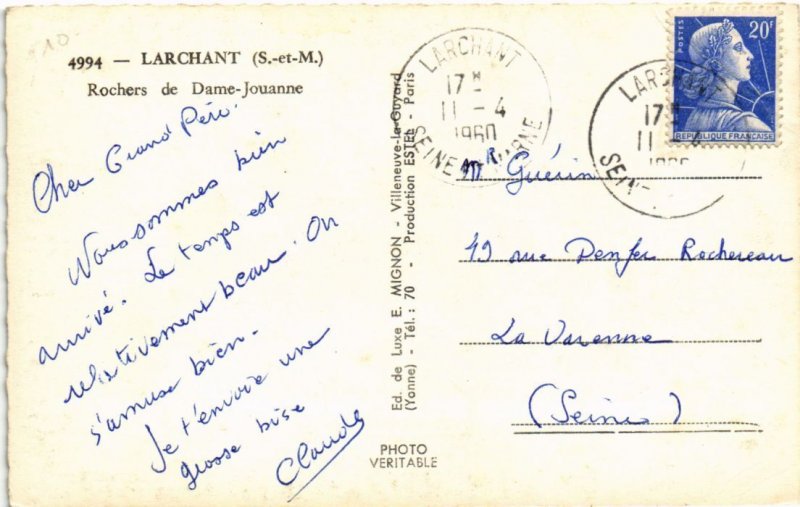 4994 — LARCHANT (S.-et-M.)
Rochers de Dame-Jouanne
Cher Grand Père.
Nous sommes bien
arrivé. Le temps est
relativement beau. On
s'amuse bien.
Je t'envoie une
grosse bise
Claude
Ed. de Luxe E. MIGNON - Villeneuve-la-Guyard
(Yonne) - Tél.: 70 - Production ESTEL - Paris
PHOTO
VERITABLE
LARCHANT
17H
11 - 4
1960
SEINE MARNE
LARCHANT
17H
11
SEIN
POSTES
20F
REPUBLIQUE FRANÇAISE
Mr Guérin
49 rue Denfer Rochereau
La Varenne
(Seine)